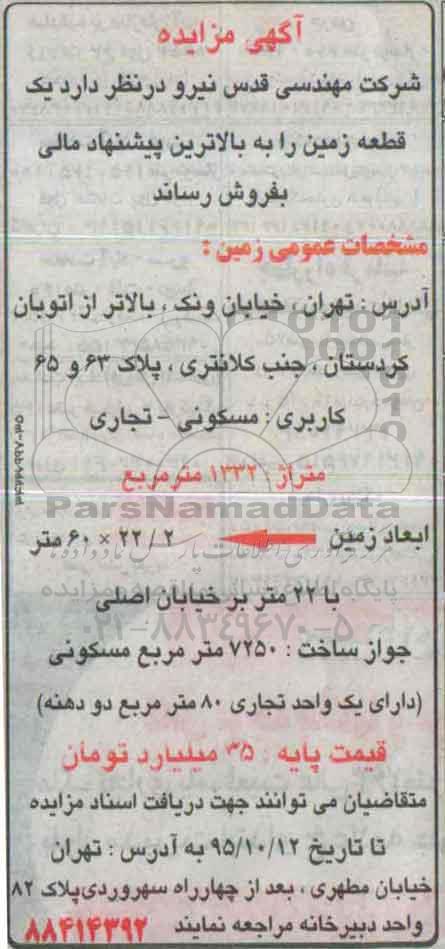 آگهی مزایده
شرکت مهندسی قدس نیرو درنظر دارد یک
قطعه زمین را به بالاترین پیشنهاد مالی
بفروش رساند
مشخصات عمومی زمین :
آدرس : تهران ، خیابان ونک ، بالاتر از اتوبان
کردستان ، جنب کلانتری ، پلاک ۶۳ و ۶۵
کاربری : مسکونی - تجاری
متراژ : ۱۲۳۲ مترمربع
ParsNamadData
ابعاد زمین ۲۲/۲ × ۶۰ متر
با ۲۲ متر بر خیابان اصلی
۰۲۱-۸۸۳۴۹۶۷۰-۵
جواز ساخت : ۷۲۵۰ متر مربع مسکونی
(دارای یک واحد تجاری ۸۰ متر مربع دو دهنه)
قیمت پایه : ۳۵ میلیارد تومان
متقاضیان می توانند جهت دریافت اسناد مزایده
تا تاریخ ۹۵/۱۰/۱۲ به آدرس : تهران
خیابان مطهری ، بعد از چهارراه سهروردی پلاک ۸۲
واحد دبیرخانه مراجعه نمایند ۸۸۴۱۴۳۹۲